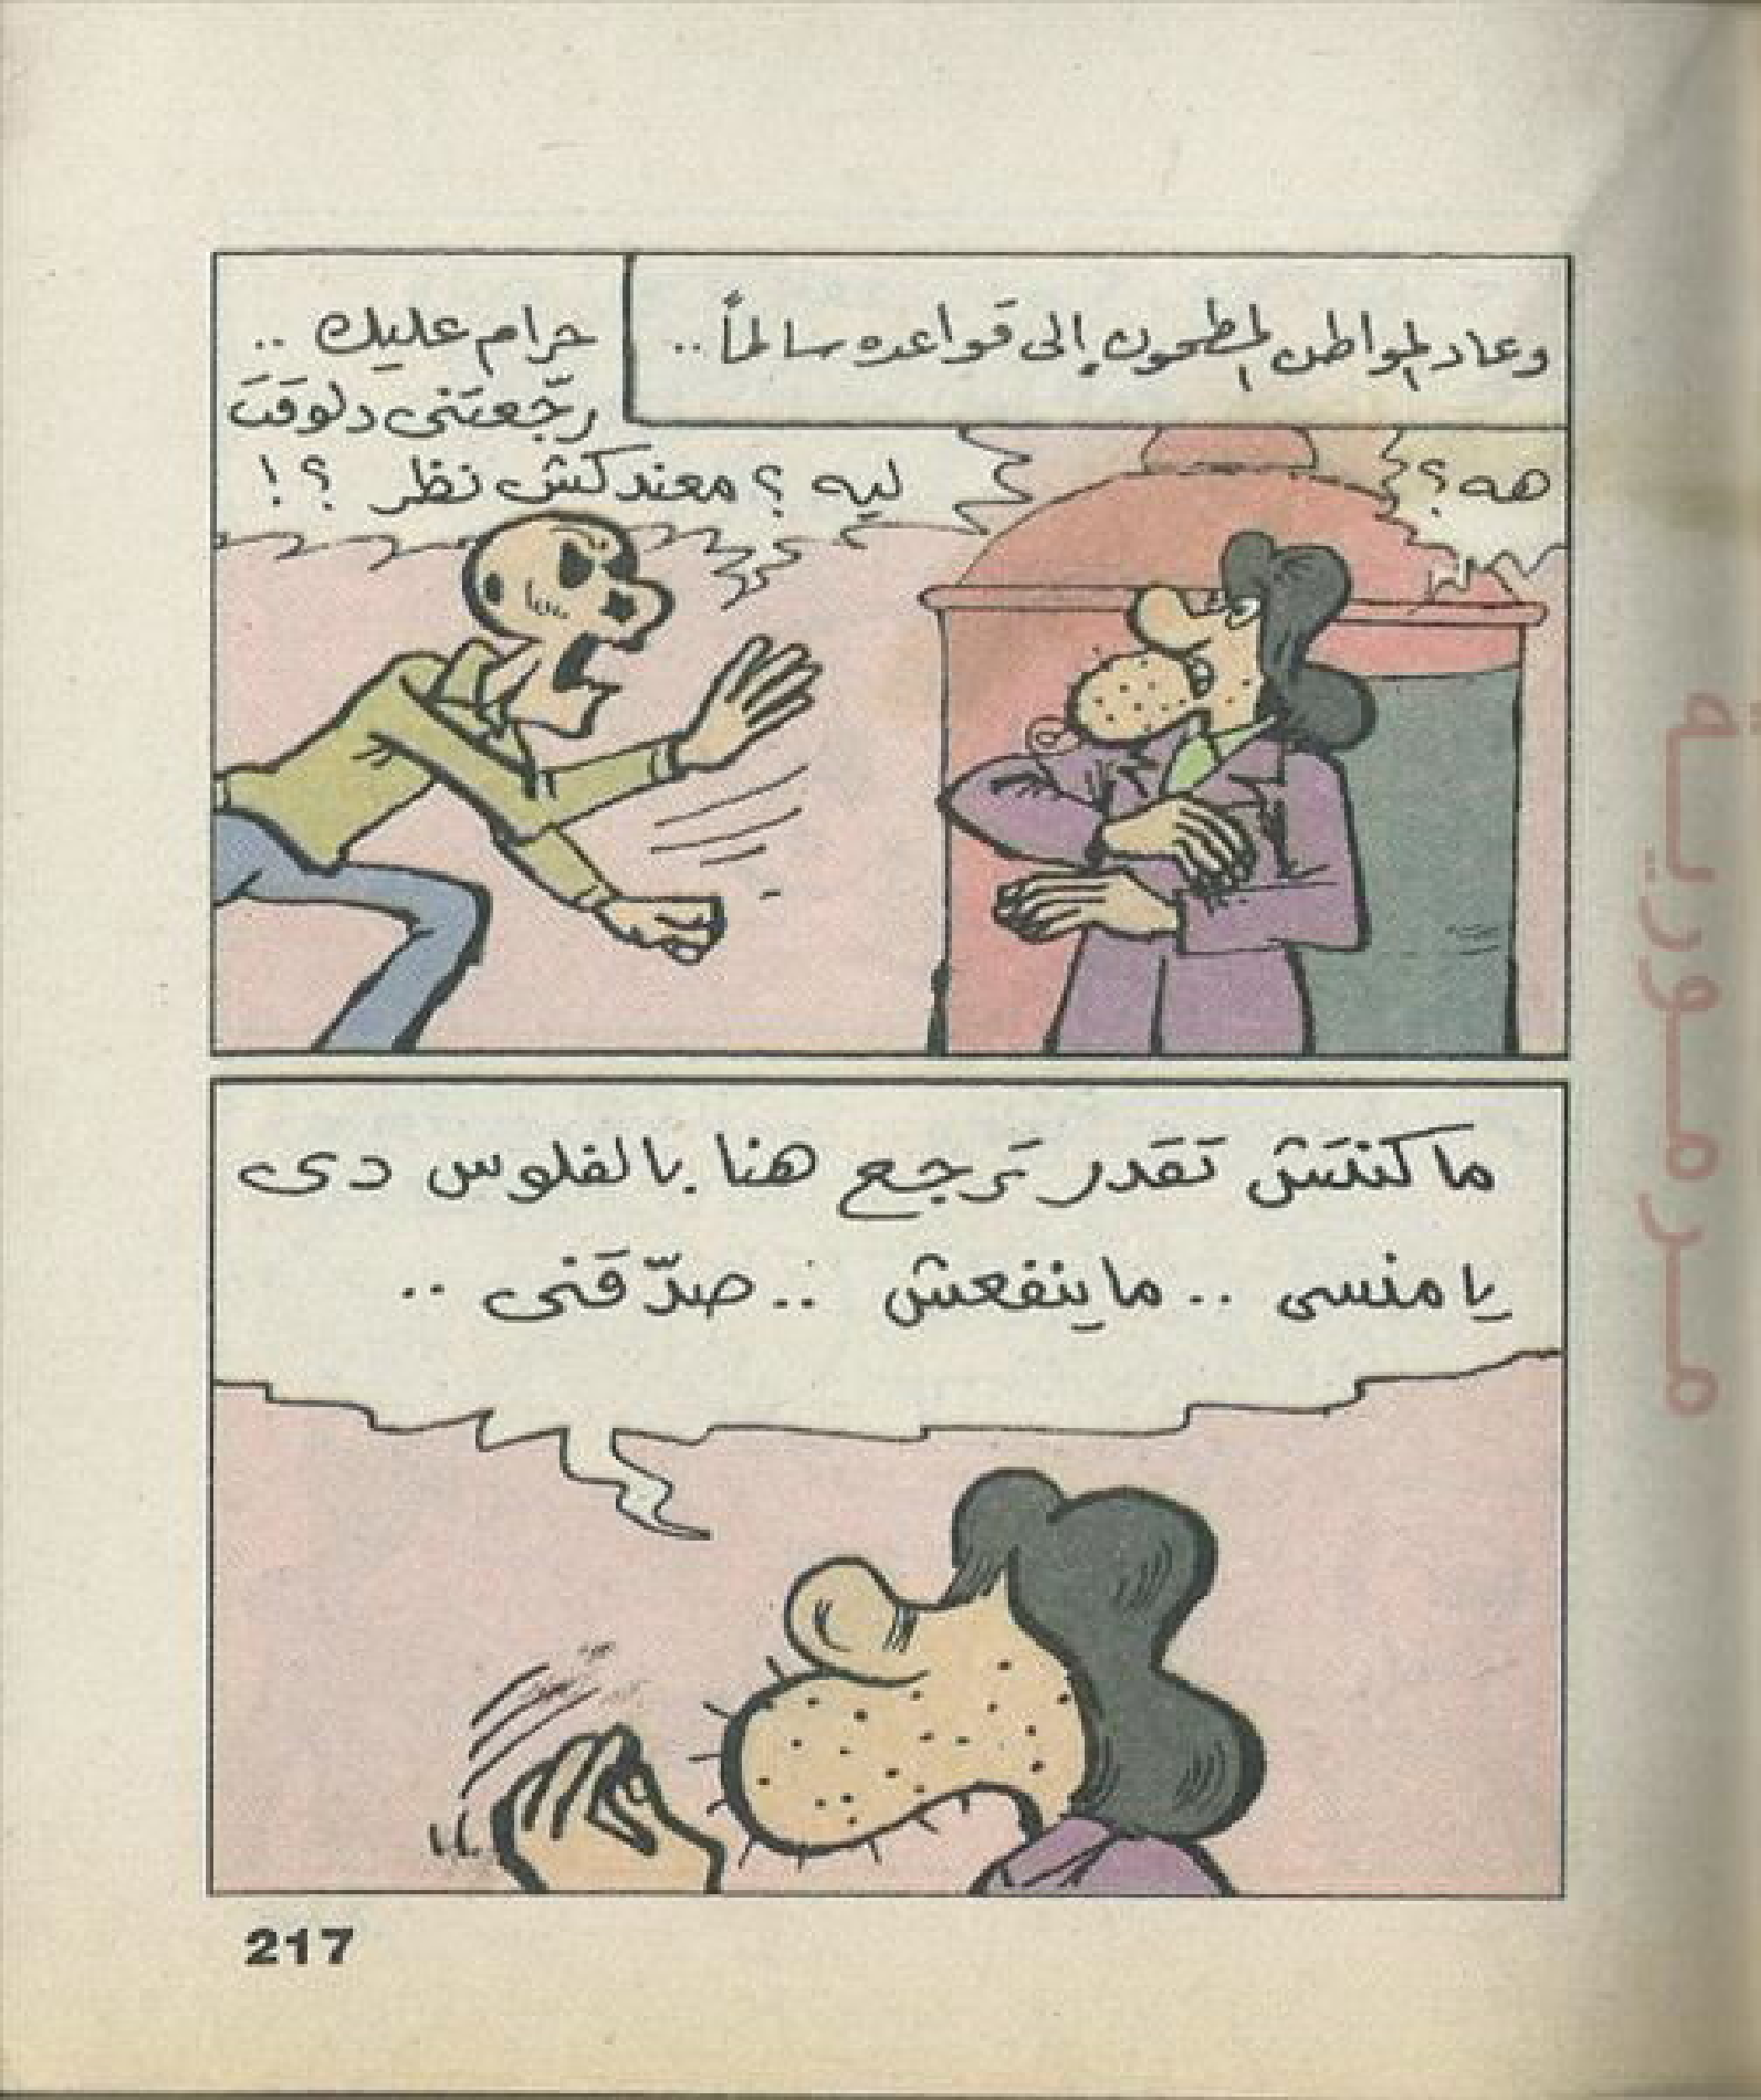 وعاد المواطن المطحون إلى قواعده سالماً..
هه؟
حرام عليك ..
رجّعتنى دلوقت
ليه ؟ معندكش نظر ؟!
ماكنتش تقدر ترجع هنا بالفلوس دى
يا منسى .. ما ينفعش .. صدّقنى ..
217
مرمورية